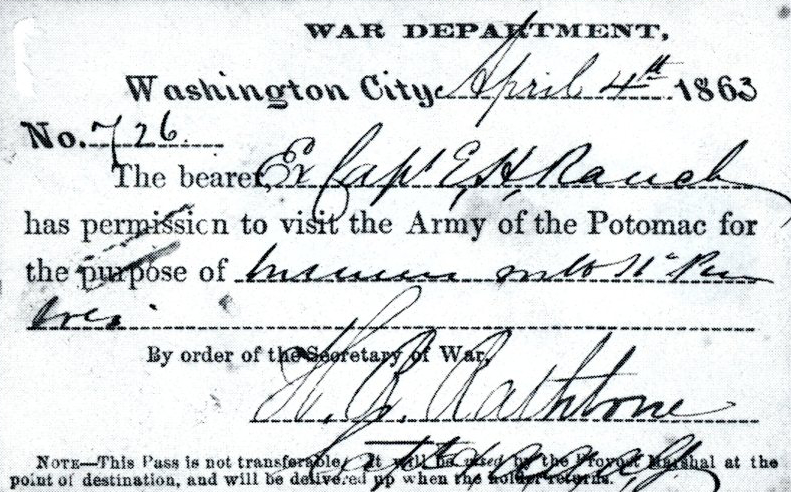 WAR DEPARTMENT,
Washington City, April 4th 1863
No. 726
The bearer, Ex Capt E, H, Rauch
has permission to visit the Army of the Potomac for
the purpose of
By order of the Secretary of War,
H. R. Rathbone
NOTE—This Pass is not transferable. It will be used by the Provost Marshal at the
point of destination, and will be delivered up when the holder returns.